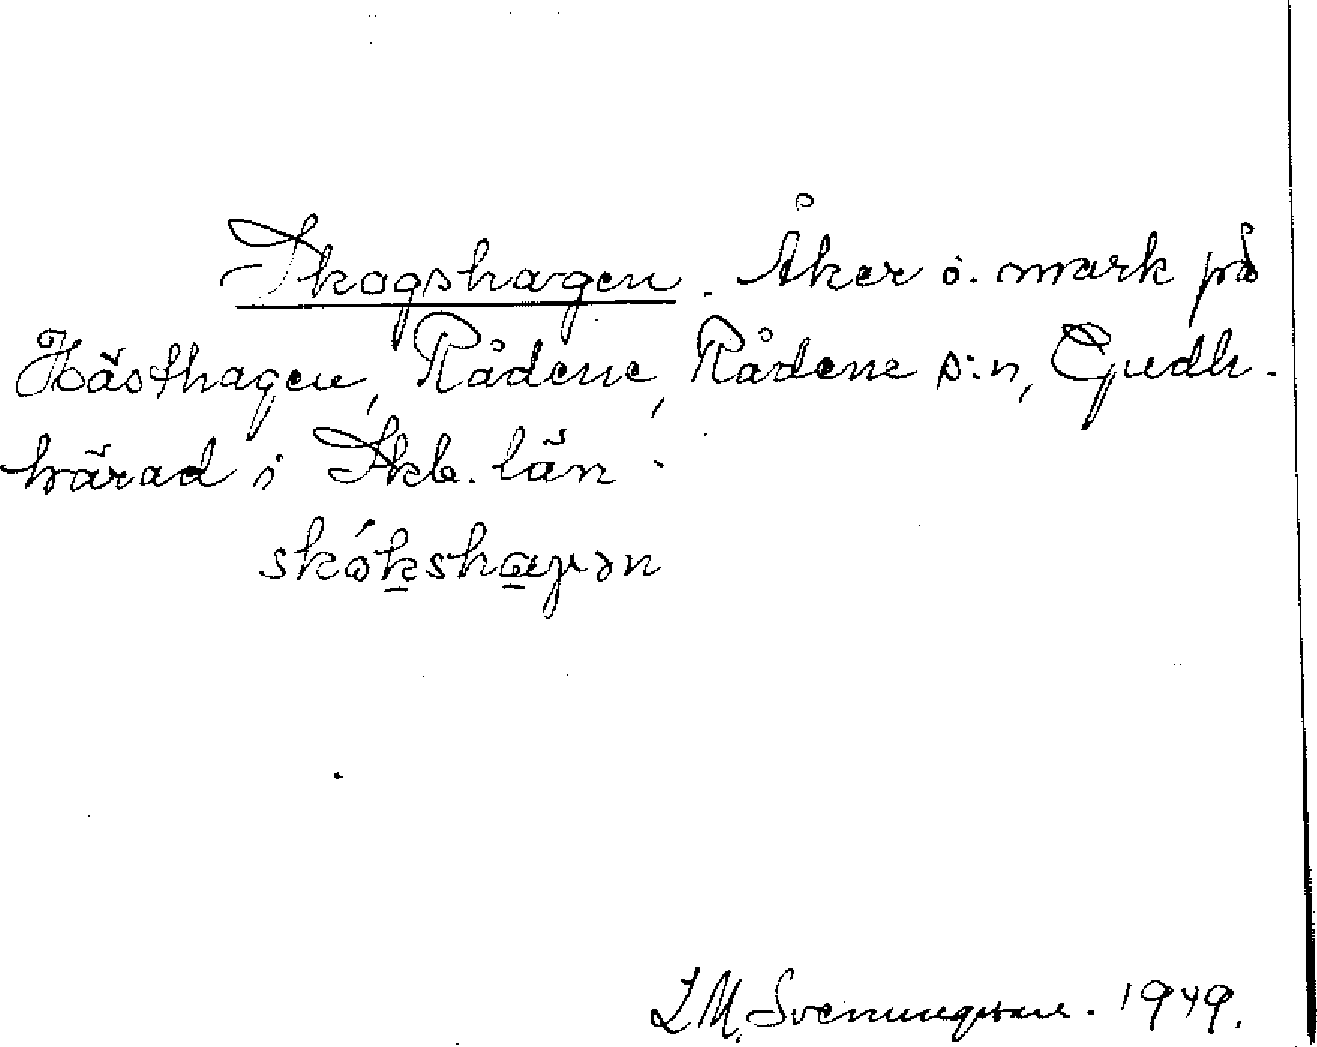 Skogshagen. Åker o. mark på
Hästhagen, Rådene, Rådene s:n, Gudh.
härad i Skb. län.
skókshaγən
I. M. Svenungsson. 1949.